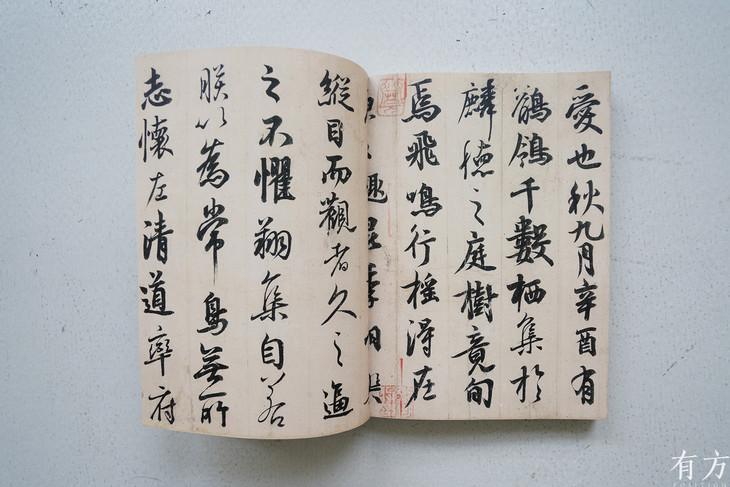 愛也秋九月辛酉有
鶺鴒千數栖集於
麟德之庭樹竟旬
焉飛鳴行摇得在
縱目而觀者久之逼
之不懼翔集自若
朕以為常鳥無所
志懷左清道率府
有方
POSITION